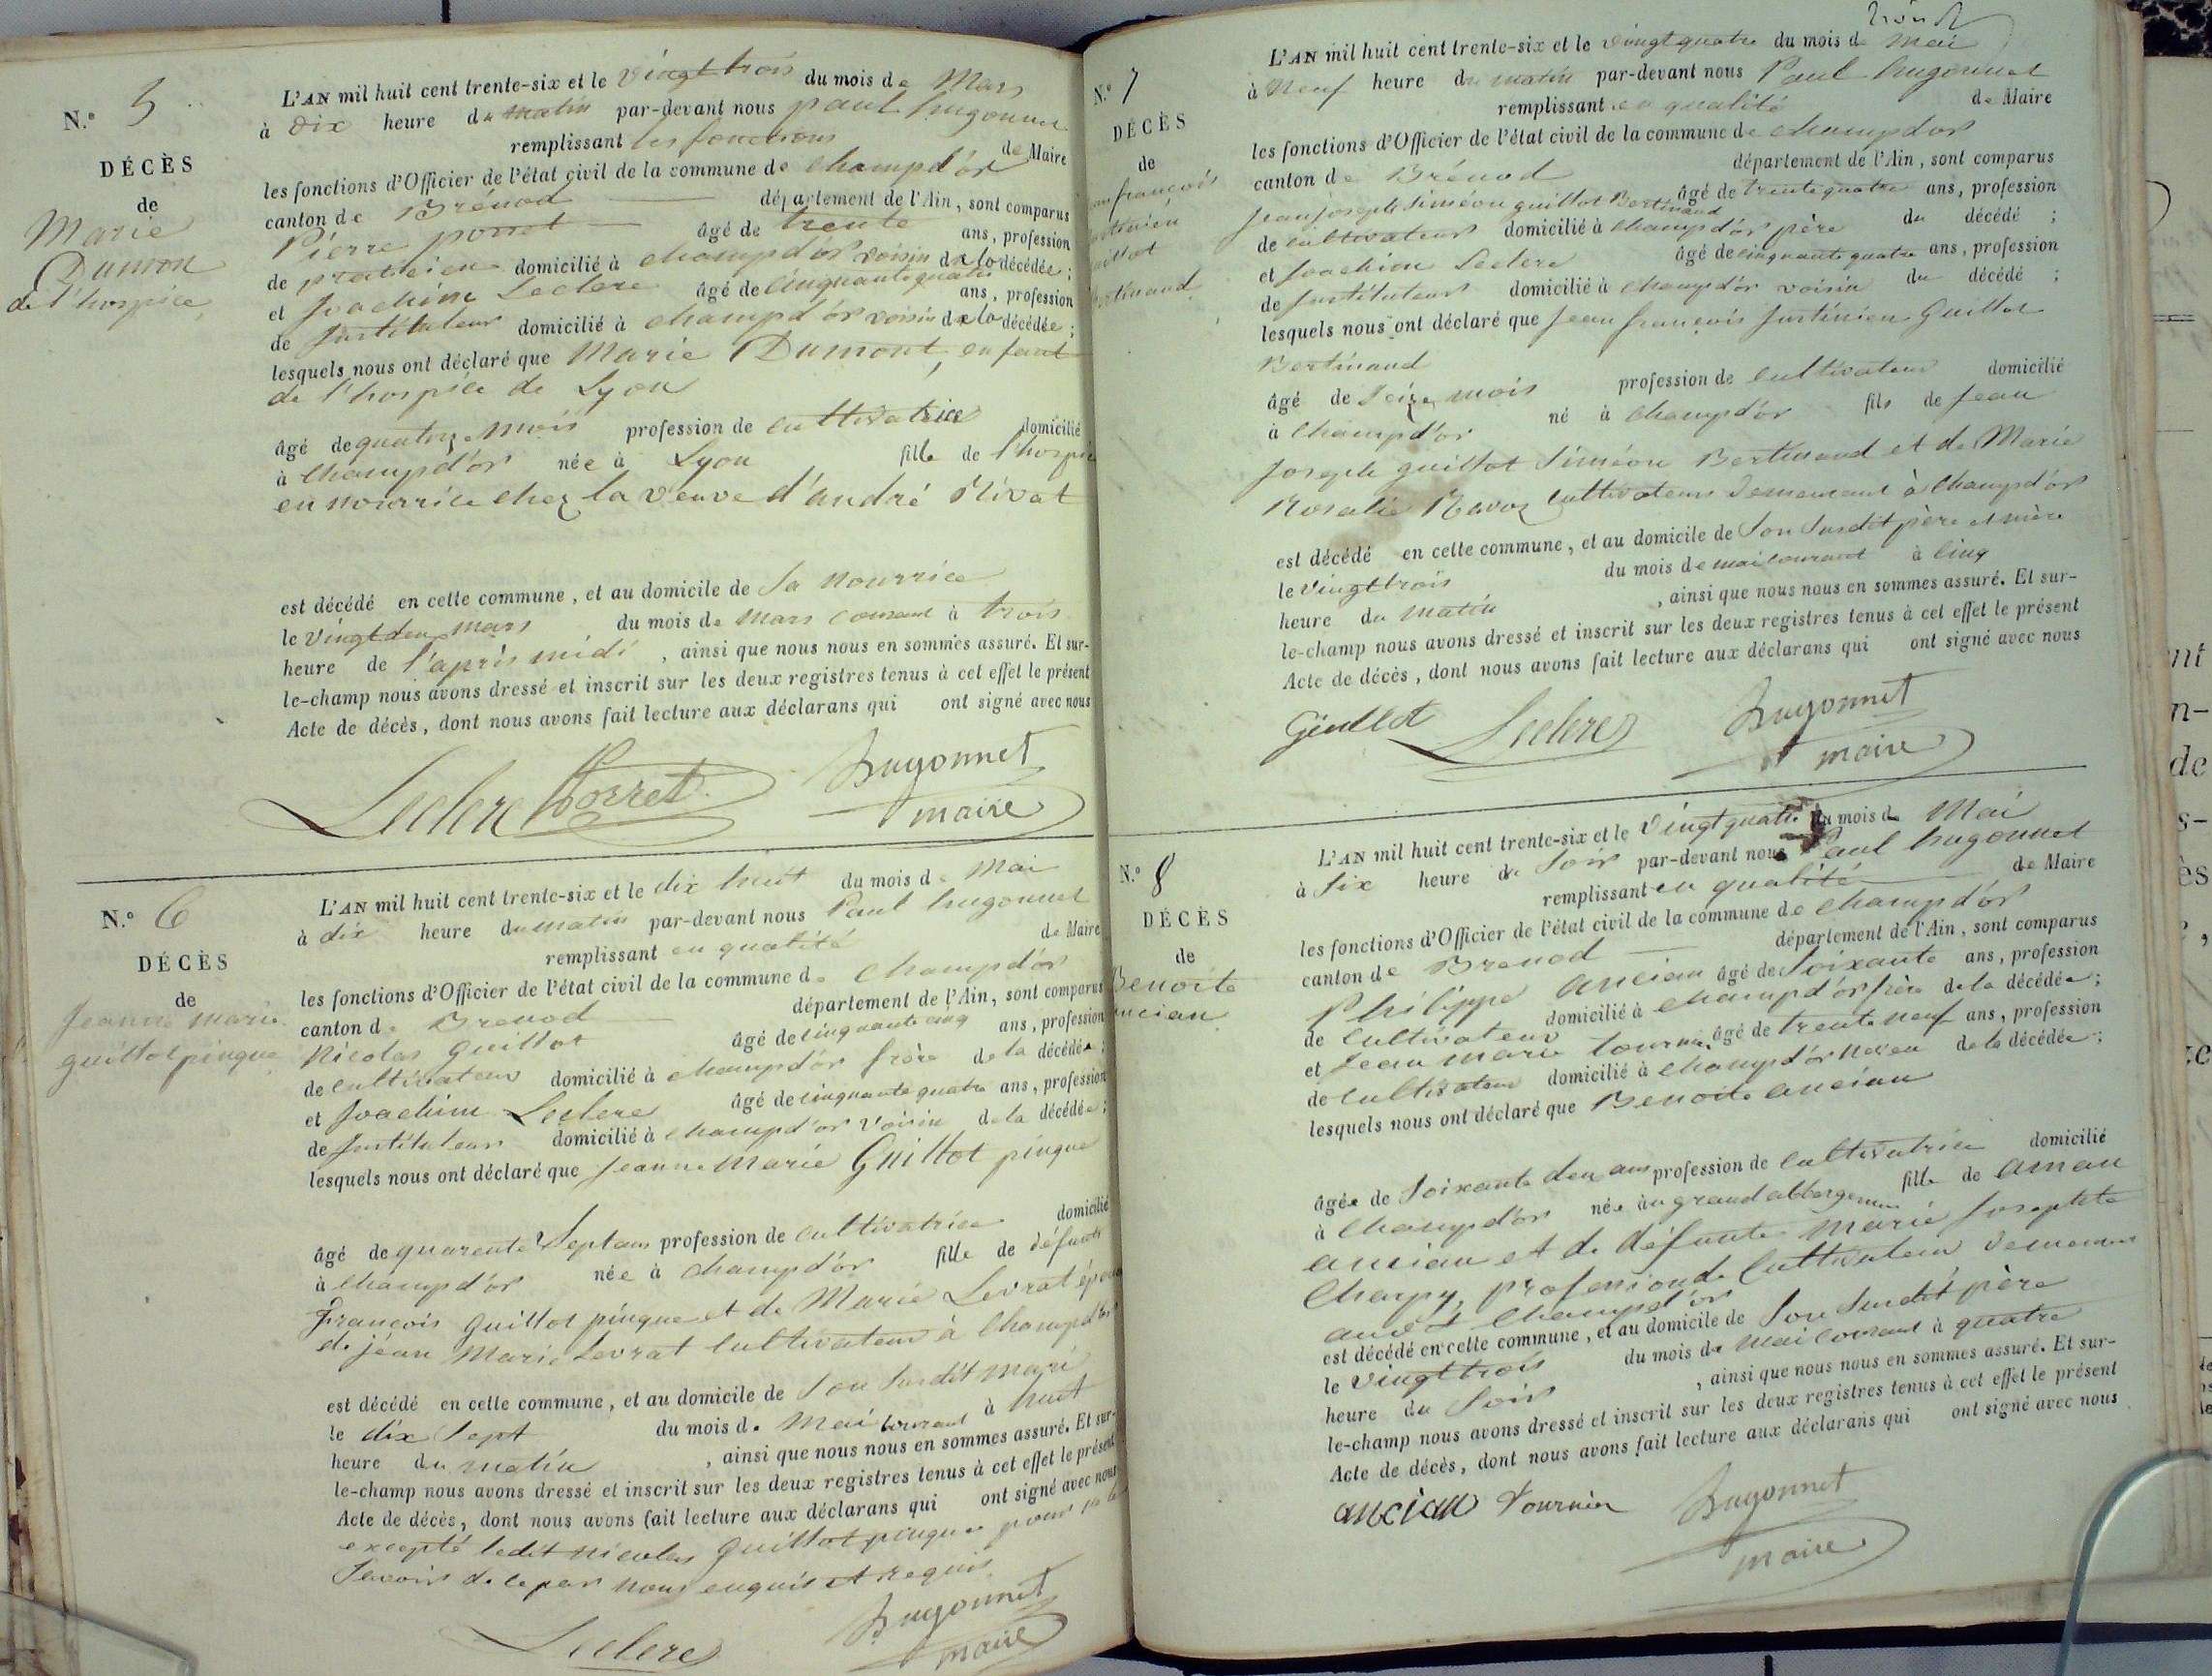 N.° 5
DÉCÈS
de
Marie
Dumon
de l'hospice
L'AN mil huit cent trente-six et le vingt trois du mois de Mars
à dix heure du matin par-devant nous paul hugonnet
remplissant les fonctions de Maire
les fonctions d'Officier de l'état civil de la commune de champd'or
canton de Brénod département de l'Ain, sont comparus
Pierre porret âgé de trente ans, profession
de praticien domicilié à champd'or voisin de la décédée;
et Joachim Leclerc âgé de cinquante quatre ans, profession
de Instituteur domicilié à champd'or voisin de la décédée;
lesquels nous ont déclaré que Marie Dumont, enfant
de l'hospice de Lyon
âgé de quatorze mois profession de cultivatrice domicilié
à Champd'or née à Lyon fille de l'hospice
en nourrice chez la veuve d'andré Rivat
est décédé en cette commune, et au domicile de Sa nourrice
le vingt deux mars du mois de mars courant à trois
heure de l'après midi, ainsi que nous nous en sommes assuré. Et sur-
le-champ nous avons dressé et inscrit sur les deux registres tenus à cet effet le présent
Acte de décès, dont nous avons fait lecture aux déclarans qui ont signé avec nous
Leclerc Porret Hugonnet
maire
N.° 6
DÉCÈS
de
Jeanne marie
guillot pingue
L'AN mil huit cent trente-six et le dix huit du mois de Mai
à dix heure du matin par-devant nous Paul hugonnet
remplissant en qualité de Maire
les fonctions d'Officier de l'état civil de la commune de Champd'or
canton de Brenod département de l'Ain, sont comparus
Nicolas Guillot âgé de cinquante cinq ans, profession
de cultivateur domicilié à champd'or frère de la décédée;
et Joachim Leclerc âgé de cinquante quatre ans, profession
de Instituteur domicilié à champd'or voisin de la décédée;
lesquels nous ont déclaré que Jeanne Marie Guillot pingue
âgé de quarente Sept ans profession de cultivatrice domicilié
à Champd'or née à champd'or fille de défunts
François Guillot pingue et de Marie Levrat épouse
de jean Marie Levrat cultivateur à Champd'or
est décédé en cette commune, et au domicile de Son Susdit mari
le dix Sept du mois de Mai courant à huit
heure du matin, ainsi que nous nous en sommes assuré. Et sur-
le-champ nous avons dressé et inscrit sur les deux registres tenus à cet effet le présent
Acte de décès, dont nous avons fait lecture aux déclarans qui ont signé avec nous
excepté ledit nicolas Guillot pingue pour ne le
Savoir de ce par nous enquis et requis.
Leclerc Hugonnet
maire
N.° 7
DÉCÈS
de
françois
L'AN mil huit cent trente-six et le vingt quatre du mois de mai
à Neuf heure du matin par-devant nous Paul hugonnet
remplissant en qualité de Maire
les fonctions d'Officier de l'état civil de la commune de champd'or
canton de Brénod département de l'Ain, sont comparus
Jean Joseph Siméon guillot Bertinand âgé de trente quatre ans, profession
de cultivateur domicilié à champd'or père du décédé;
et Joachim Leclerc âgé de cinquante quatre ans, profession
de Instituteur domicilié à champd'or voisin du décédé;
lesquels nous ont déclaré que Jean françois Justinien Guillot
Bertinand
âgé de Seize mois profession de cultivateur domicilié
à Champd'or né à champd'or fils de Jean
Joseph guillot Siméon Bertinand et de Marie
Rosalie Ravoz cultivateurs demeurant à Champd'or
est décédé en cette commune, et au domicile de Son Susdit père et mère
le vingt trois du mois de mai courant à cinq
heure du matin, ainsi que nous nous en sommes assuré. Et sur-
le-champ nous avons dressé et inscrit sur les deux registres tenus à cet effet le présent
Acte de décès, dont nous avons fait lecture aux déclarans qui ont signé avec nous
Guillot Leclerc Hugonnet
maire
N.° 8
DÉCÈS
de
Benoite
ancian
L'AN mil huit cent trente-six et le vingt quatre du mois de Mai
à Six heure du Soir par-devant nous Paul hugonnet
remplissant en qualité de Maire
les fonctions d'Officier de l'état civil de la commune de champd'or
canton de Brenod département de l'Ain, sont comparus
Philippe ancian âgé de Soixante ans, profession
de cultivateur domicilié à champd'or frère de la décédée;
et Jean marie tournier âgé de trente neuf ans, profession
de cultivateur domicilié à champd'or neveu de la décédée;
lesquels nous ont déclaré que Benoite ancian
âgée de Soixante deux ans profession de cultivatrice domicilié
à Champd'or née au grand abbergement fille de aman
ancian et de défunte Marie Josephte
Charpy, profession de cultivateur demeurant
audit champd'or
est décédé en cette commune, et au domicile de Son Susdit père
le vingt trois du mois de mai courant à quatre
heure du Soir, ainsi que nous nous en sommes assuré. Et sur-
le-champ nous avons dressé et inscrit sur les deux registres tenus à cet effet le présent
Acte de décès, dont nous avons fait lecture aux déclarans qui ont signé avec nous
ancian Tournier Hugonnet
maire